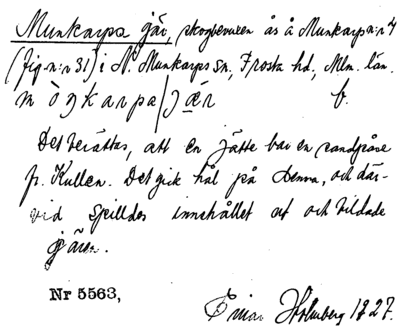 Munkarpa gär, skogbevuxen ås å Munkarp n:r 4
(fig n:r 31) i N. Munkarps sn, Frosta hd, Mlm. län.
m ò g k a r p a | j æ r b.
Det berättas, att en jätte bar en sandpåse
fr. Kullen. Det gick hål på denna, och där-
vid spilldes innehållet ut och bildade
gären.
Nr 5563, Holmberg 1927.